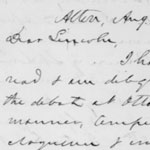 Alton, Aug.
Dear Lincoln,
I ha
read a
the debate at Otta
manner,
eloquence &